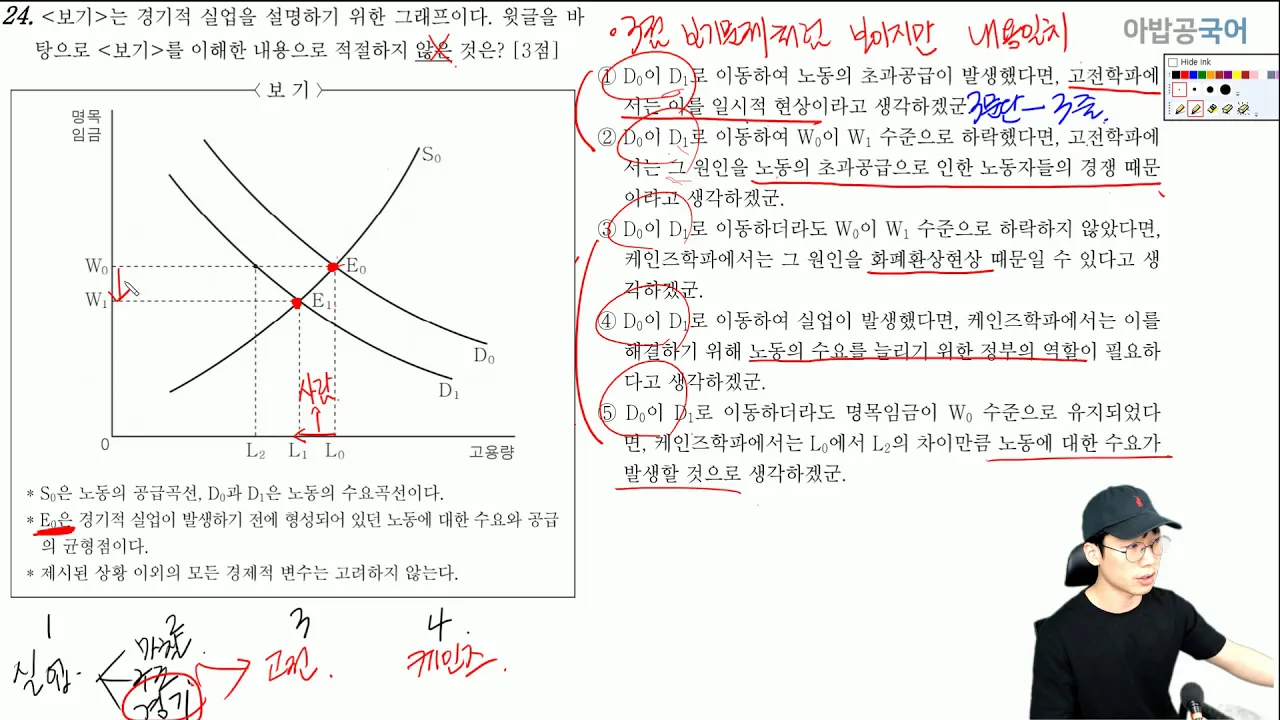 24. <보기>는 경기적 실업을 설명하기 위한 그래프이다. 윗글을 바
탕으로 <보기>를 이해한 내용으로 적절하지 않은 것은? [3점]
<보 기>
명목
임금
S₀
W₀
E₀
W₁
E₁
D₀
D₁
사람
0
L₂
L₁
L₀
고용량
* S₀은 노동의 공급곡선, D₀과 D₁은 노동의 수요곡선이다.
* E₀은 경기적 실업이 발생하기 전에 형성되어 있던 노동에 대한 수요와 공급
의 균형점이다.
* 제시된 상황 이외의 모든 경제적 변수는 고려하지 않는다.
1 2 3 4
실업
마찰
구조
경기
고전
케인즈
·3점 보기문제처럼 보이지만 내용일치
아밥공국어
Hide Ink
① D₀이 D₁로 이동하여 노동의 초과공급이 발생했다면, 고전학파에
서는 이를 일시적 현상이라고 생각하겠군
3문단 - 3줄.
② D₀이 D₁로 이동하여 W₀이 W₁ 수준으로 하락했다면, 고전학파에
서는 그 원인을 노동의 초과공급으로 인한 노동자들의 경쟁 때문
이라고 생각하겠군.
③ D₀이 D₁로 이동하더라도 W₀이 W₁ 수준으로 하락하지 않았다면,
케인즈학파에서는 그 원인을 화폐환상현상 때문일 수 있다고 생
각하겠군.
④ D₀이 D₁로 이동하여 실업이 발생했다면, 케인즈학파에서는 이를
해결하기 위해 노동의 수요를 늘리기 위한 정부의 역할이 필요하
다고 생각하겠군.
⑤ D₀이 D₁로 이동하더라도 명목임금이 W₀ 수준으로 유지되었다
면, 케인즈학파에서는 L₀에서 L₂의 차이만큼 노동에 대한 수요가
발생할 것으로 생각하겠군.